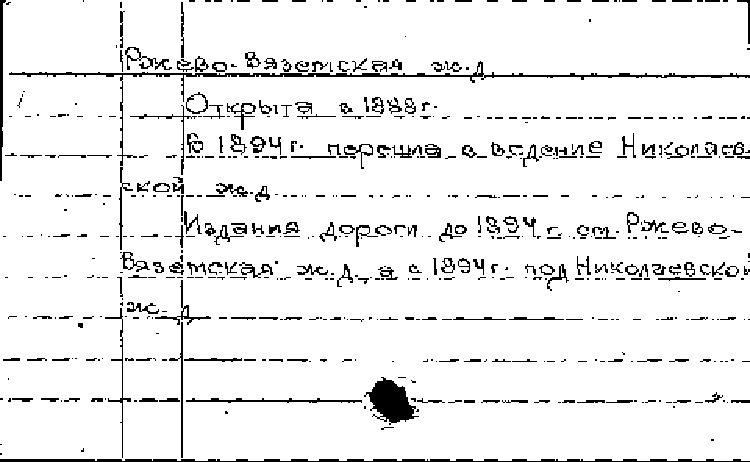 Ржево-Вяземская ж.д.
Открыта в 1888 г.
В 1894 г. перешла в ведение Николаев-
ской ж.д.
Издания дороги до 1894 г. см. Ржево-
Вяземская ж.д., а с 1894 г. под Николаевской
ж.д.